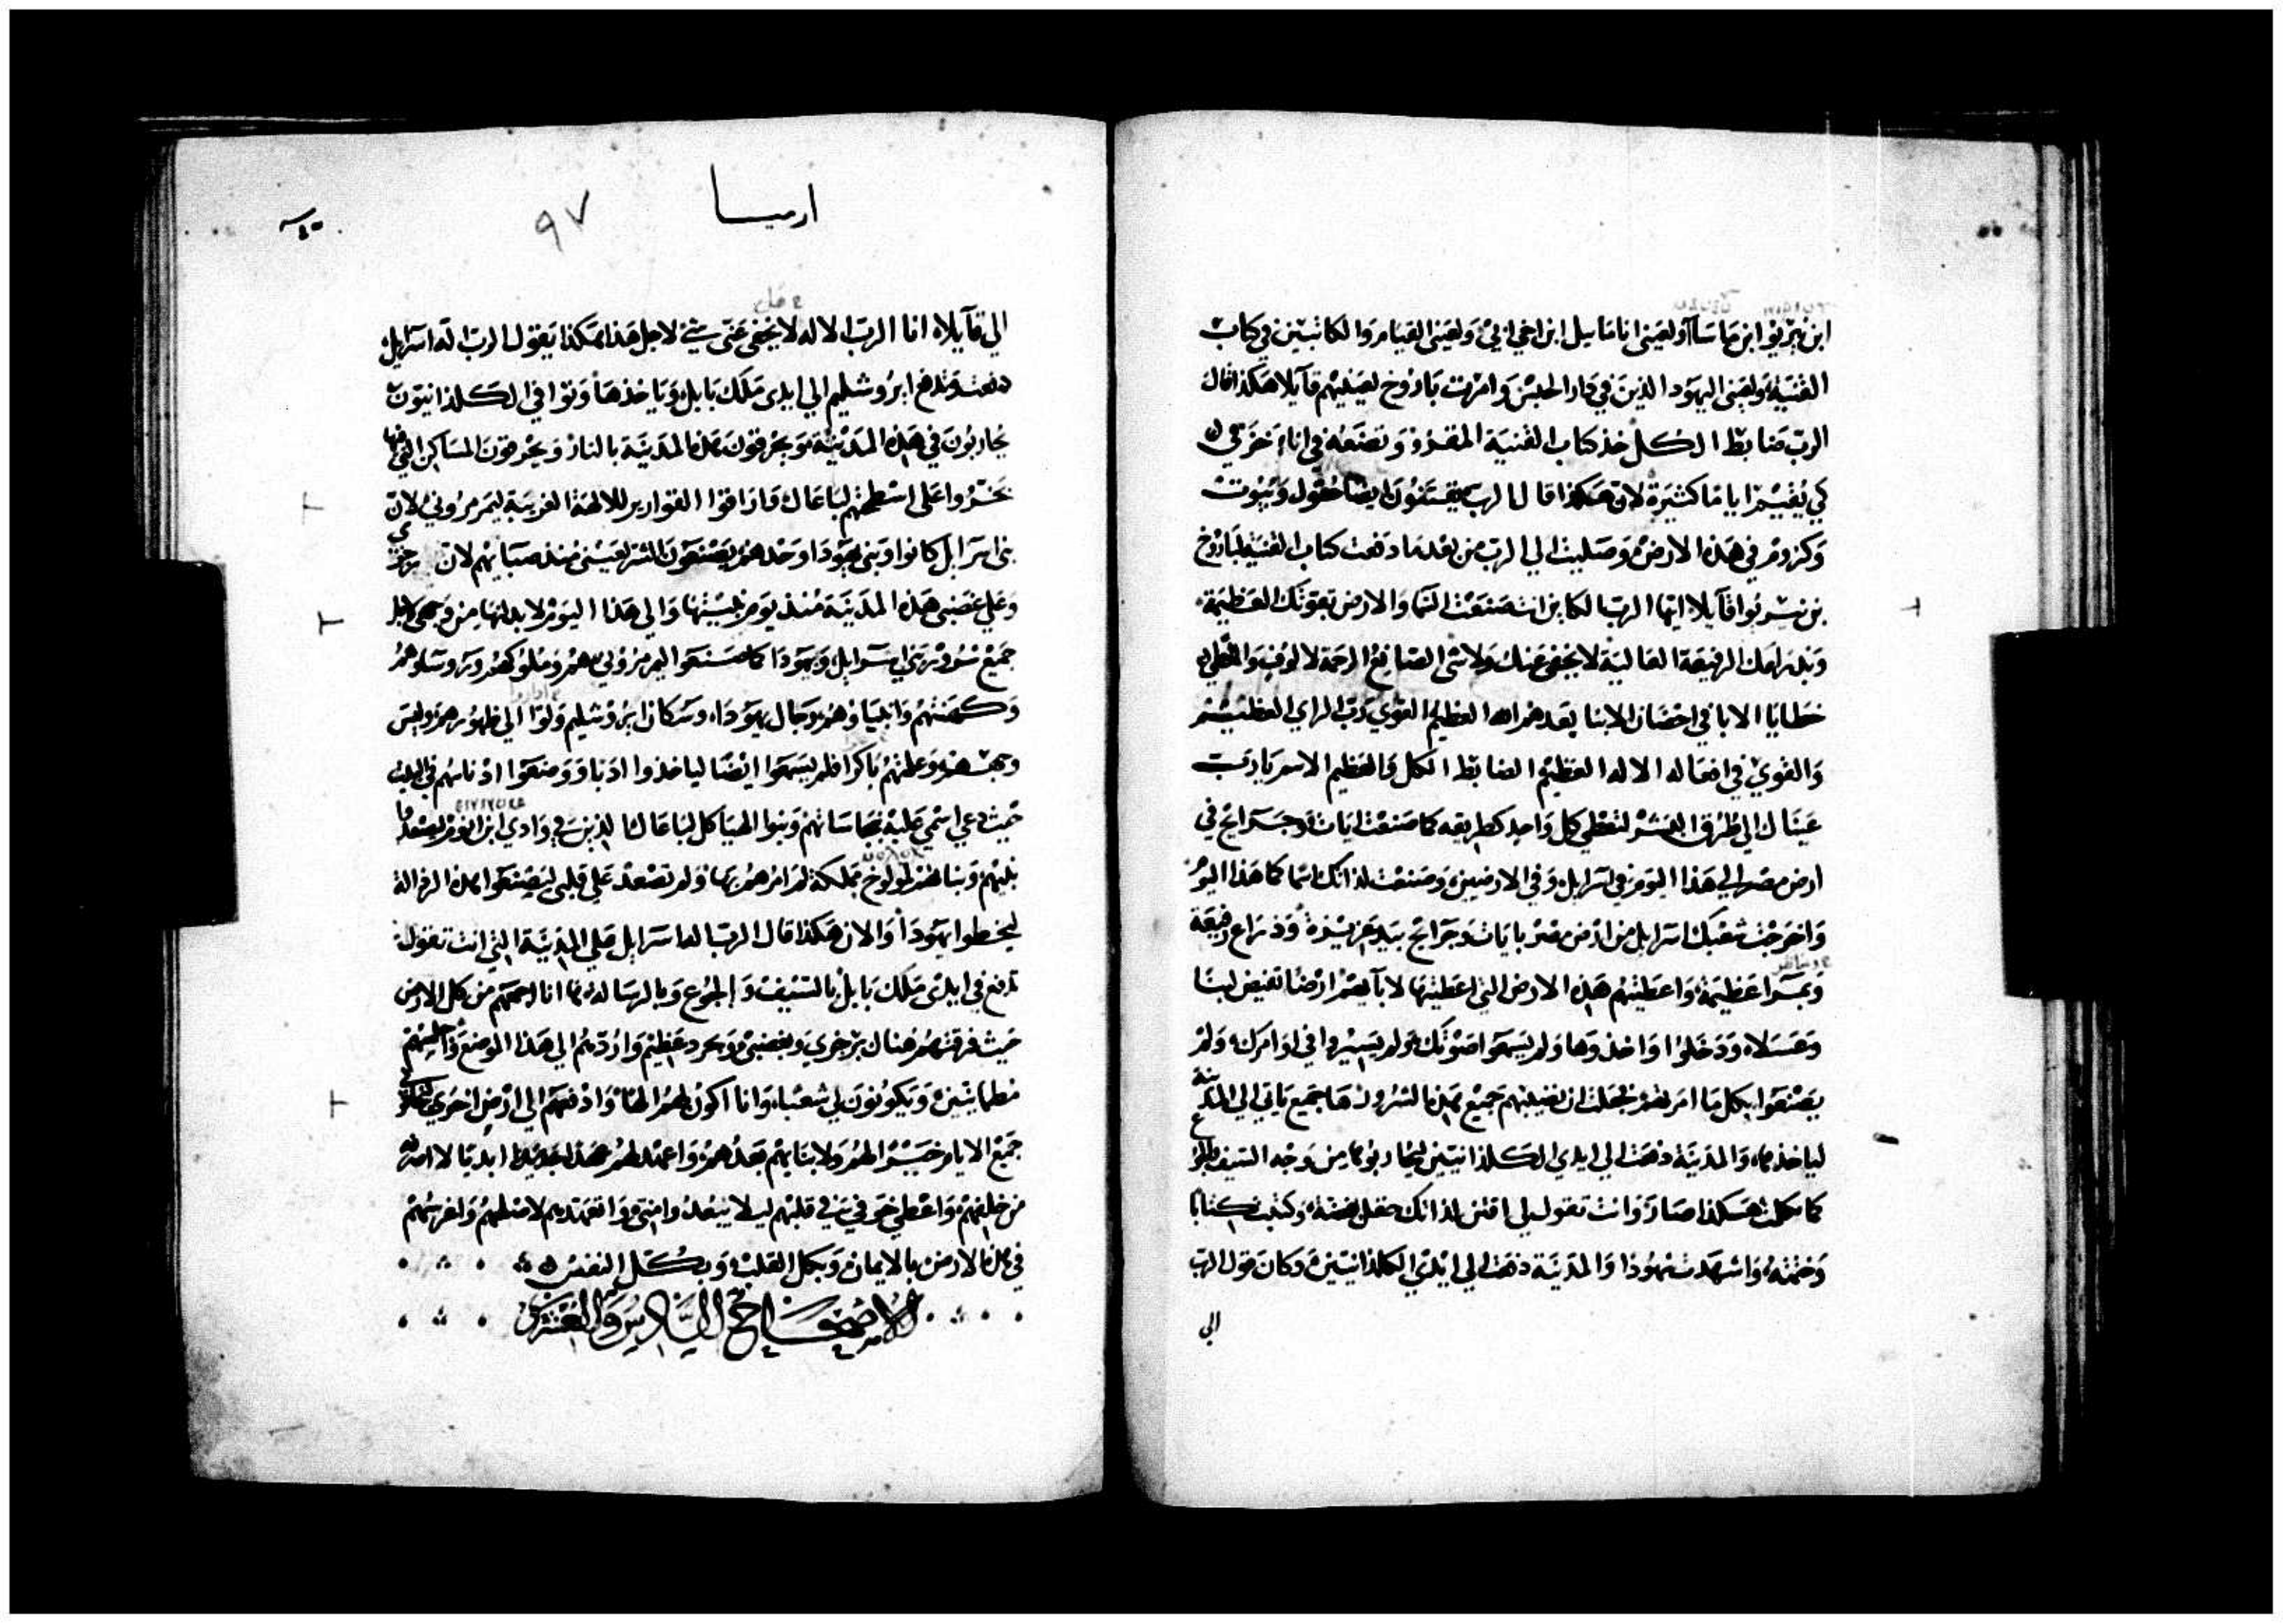 ابن نيريو ابن ماسا ولعيني انامايل ابن اخي ابي ولعيني القيام والكاتبين في كتاب
القنية ولعيني اليهود الذين في دار الحبس وامرت باروخ لعينيهم قايلا هكذا قال
الرب ضابط الكل خذ كتاب القنية المقروو وتضعه في اناء خزفي
كي يقيم اياما كثيرة لان هكذا قال الرب يقتنون ايضا حقول وبيوت
وكروم في هذه الارض وصليت الي الرب من بعد ما دفعت كتاب القنية لباروخ
بن نيريوا قايلا ايها الرب الكاين انت صنعت السما والارض بقوتك العظيمة
وبذراعك الرفيعة العالية لا يخفي عنك ولا شي الصانع الرحمة لالوف والمعطي
خطايا الابا في احضان الابنا بعدهم الله العظيم القوي رب الراي العظيم
والقوي في افعاله الاله العظيم الضابط الكل والعظيم الاسم يا رب
عيناك الي طرق البشر لتعطي كل واحد كطريقه كما صنعت ايات وجرايح في
ارض مصر الي هذا اليوم في اسرايل وفي الارضيين وصنعت لذاتك اسما كما هذا اليوم
واخرجت شعبك اسرايل من ارض مصر بايات وجرايح بيد عزيزة وذراع رفيعة
وبمرا عظيمة واعطيتهم هذه الارض التي اعطيتها لابايهم ارضا تفيض لبنا
وعسلا ودخلوا واخذوها ولم يسمعوا صوتك ولم يسيروا في اوامرك ولم
يصنعوا بكل ما امرتهم فجعلت ان تصيبهم جميع هذه الشرور ها جميع ياتي الي المدينة
لياخذها والمدينة دفعت الي ايدي الكلدانيين ليحاربوها من وجه السيف والجوع
كما تكلمت هكذا صار وانت تقول لي اقتن لذاتك حقل بفضة وكتبت كتابا
وختمته واشهدت شهودا والمدينة دفعت الي ايدي الكلدانيين وكان قول الرب
الي
ارميا
٩٧
الي قايلا انا الرب الاله لا يخفي عني شي لاجل هذا هكذا يقول الرب اله اسرايل
دفعت وتدفع ايروشليم الي ايدي ملك بابل وياخذها وتوافي الكلدانيون
يحاربون في هذه المدينة ويحرقون هذه المدينة بالنار ويحرقون المساكن التي فيها
بخروا علي اسطحتهم لباعال وذاقوا القوارير للالهة الغريبة ليمرمروني لان
بني اسرايل كانوا وبني يهودا وحدهم يصنعون الشر لعيني منذ صباهم لان رجزي
وعلي غضبي هذه المدينة منذ يوم بنيتها والي هذا اليوم لابدلها من وجهي لاجل
جميع شرور بني اسرايل ويهودا كما صنعوا ليمرمروني هم وملوكهم وروساوهم
وكهنتهم وانبياوهم ورجال يهودا وسكان ايروشليم وولوا الي ظهورهم وليس
وجههم وعلمتهم باكرا فلم يسمعوا ايضا لياخذوا ادبا ووضعوا ادناسهم في البيت
حيث دعي اسمي عليه بنجاساتهم وبنوا الهياكل لباعال الذين في وادي ابن انوم ليصعدوا
بنيهم وبناتهم لمولوخ مملكة لم امرهم بها ولم تصعد علي قلبي ليصنعوا هذه الرذالة
ليخطوا يهودا والان هكذا قال الرب اله اسرايل علي المدينة التي انت تقول
تدفع في ايدي ملك بابل بالسيف والجوع وبالرسالة ها انا اجمعهم من كل الارض
حيث فرقتهم هناك برجزي وبغضبي وبحرد عظيم واردهم الي هذا الموضع واجلسهم
مطمانين ويكونون لي شعبا وانا اكون لهم الها وادفعهم الي ارض اخري
جميع الايام خيرا لهم ولابنايهم بعدهم واعهد لهم عهدا جديدا ابديا لا اصرفه
من خلفهم واعطي خوفي في قلبهم ليلا يبعدوا مني واتعهدهم لاصلحهم ولغرسهم
في هذه الارض بالايمان وبكل القلب وبكل النفس
الاصحاح السادس والعشرون